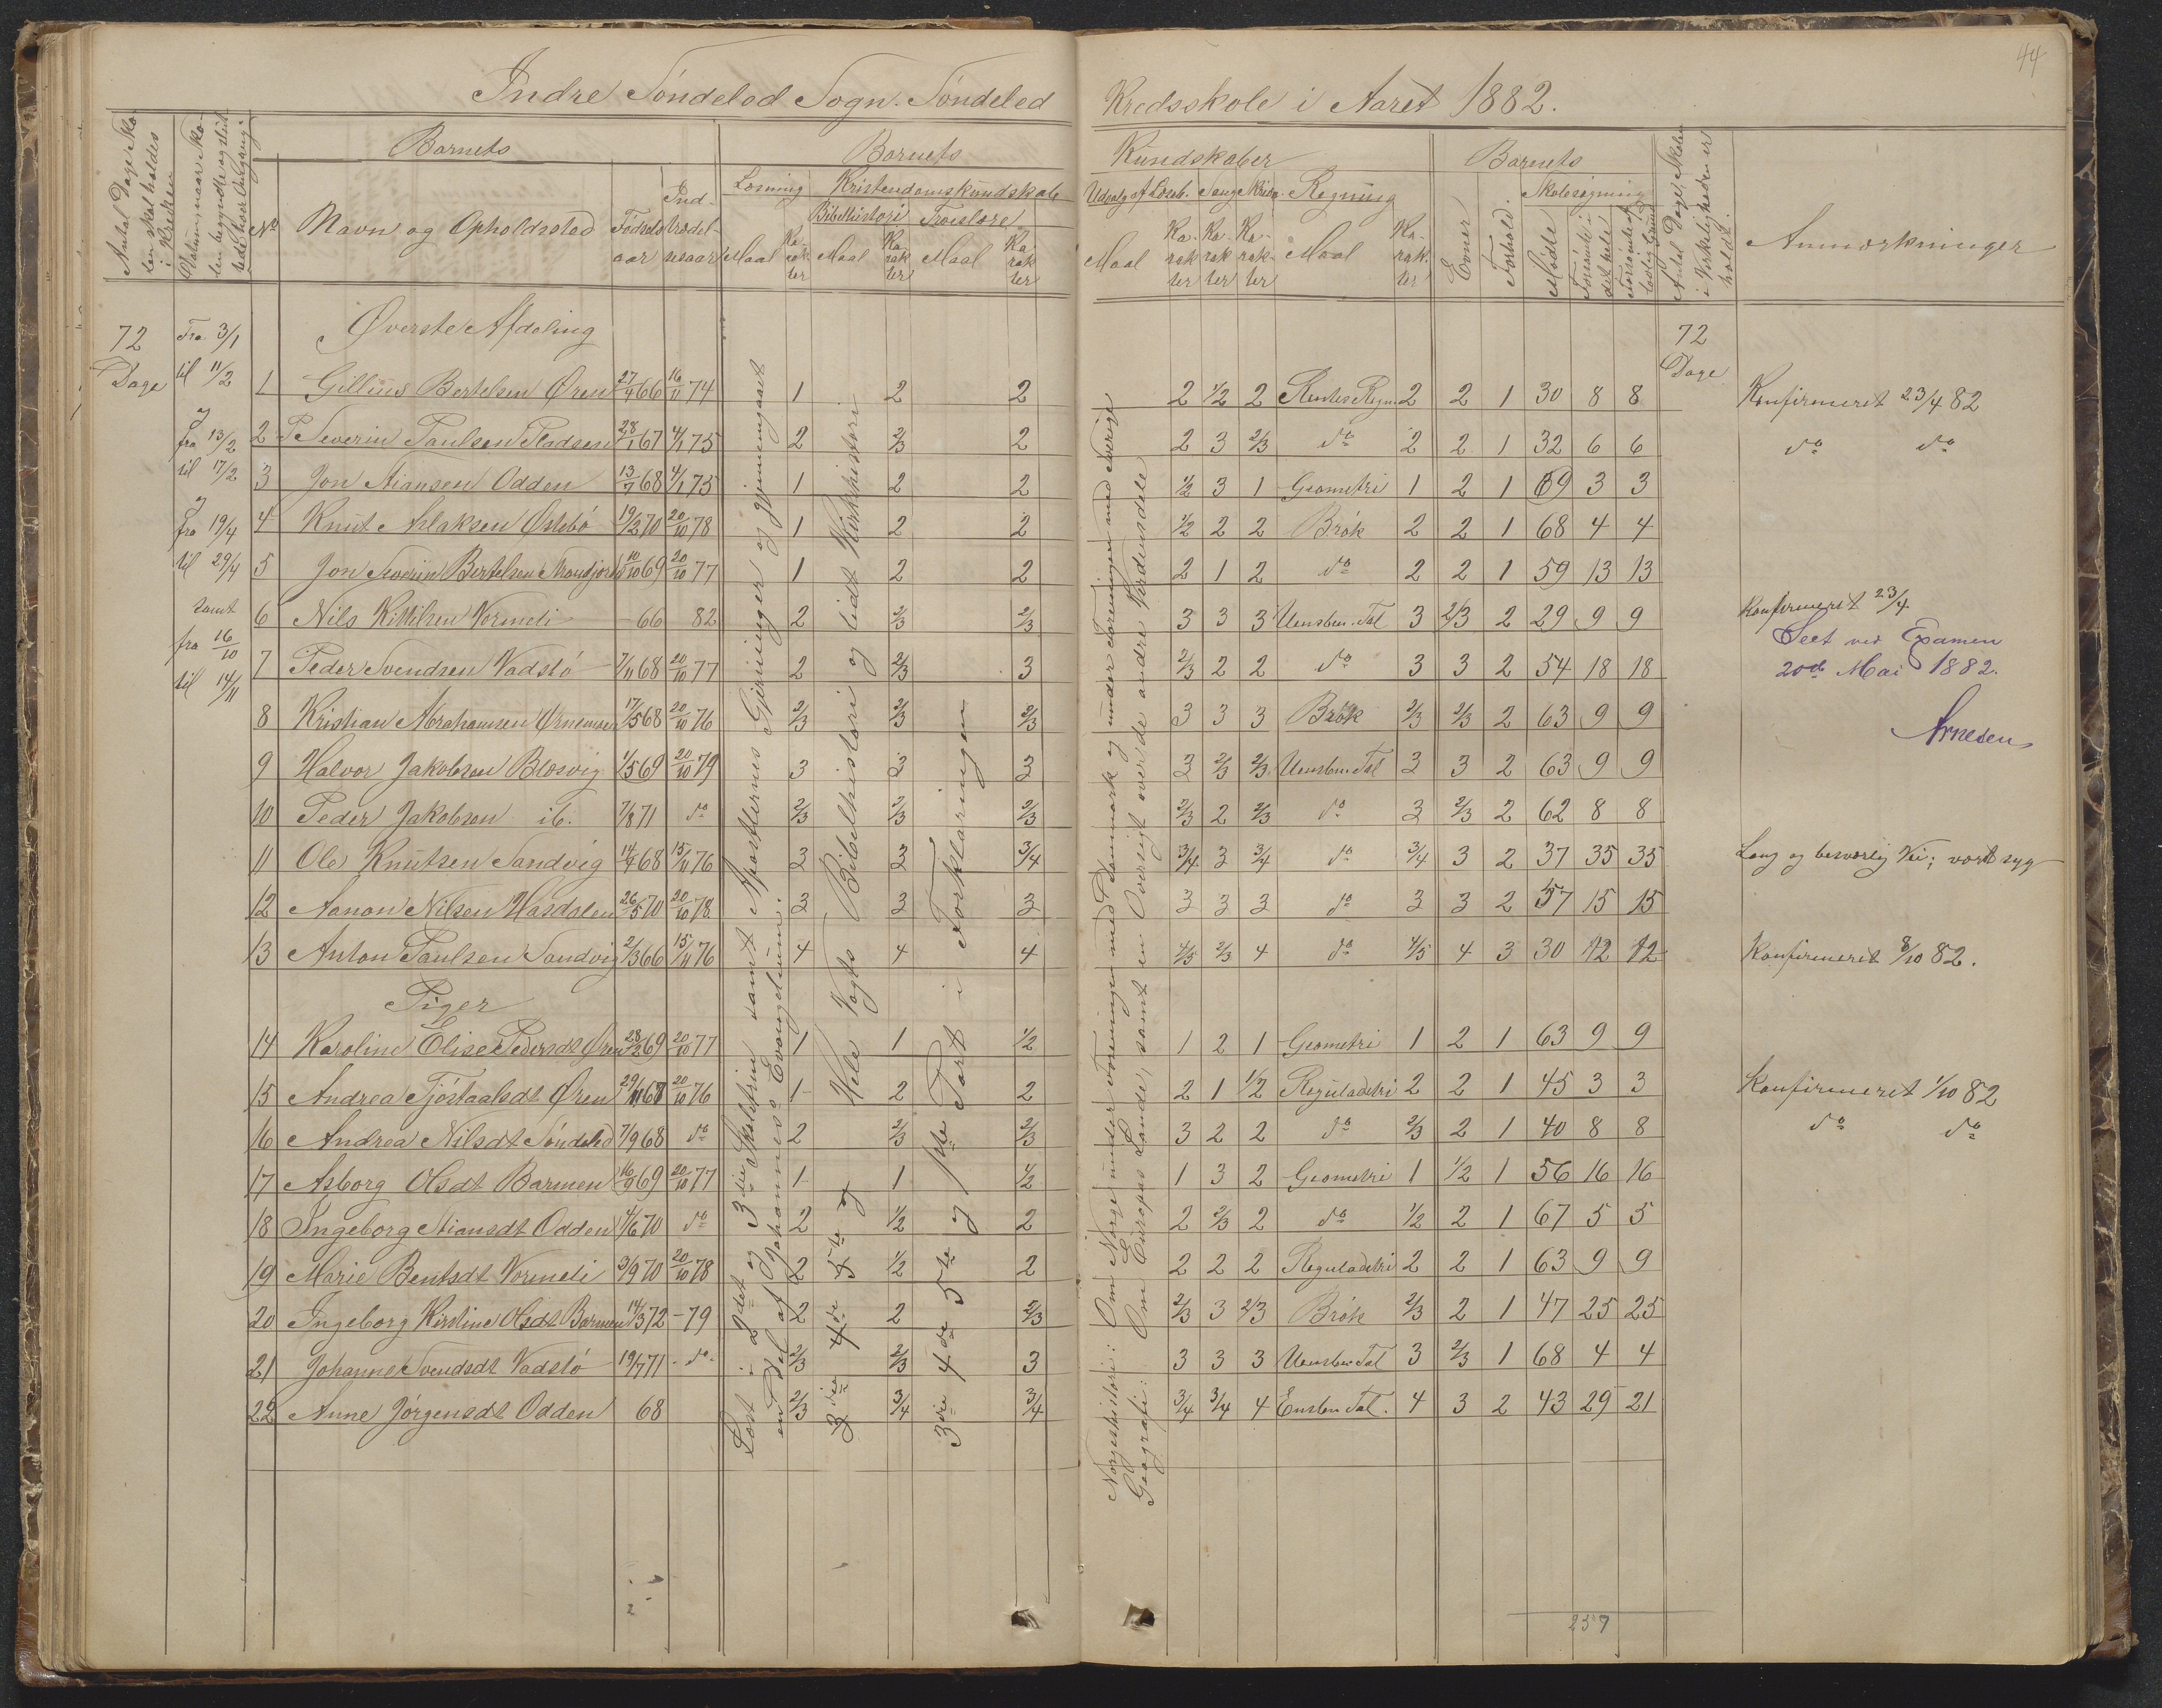 44
Indre Söndeled Sogn. Söndeled Kredsskole i Aaret 1882.
Antal Dage Skolen skal holdes i Kredsen
Datum, naar Skolen begyndte og sluttede hver Omgang.
Barnets
No
Navn og Opholdssted
Fødselsaar
Indtrædelsesaar
Barnets Kundskaber
Læsning
Maal
Karakter
Kristendomskundskab
Bibelhistorie
Maal
Karakter
Troeslære
Maal
Karakter
Udvalg af Læseb.
Maal
Karakter
Sang
Karakter
Skrivn.
Karakter
Regning
Maal
Karakter
Barnets
Evner
Forhold.
Skolesøgning
Mødte
Forsømte i det hele
Forsømte af lovlig Grund
Antal Dage, Skolen i Virkeligheden er holdt.
Anmærkninger
72 Dage
Fra 3/1
til 11/2
og
fra 13/2
til 17/2
og
fra 19/4
til 29/4
samt
fra 16/10
til 14/11
Øverste Afdeling
72 Dage
1 Gillius Bertelsen Øren 27/4 66 16/11 74 1 2 2 2 1/2 2 Rentes Regn. 2 2 1 30 8 8 Konfirmeret 23/4 82
2 P Severin Paulsen Pladsen 28/1 67 4/1 75 2 2/3 2 2 3 2/3 do 2 2 1 32 6 6 do do
3 Jon Stiansen Odden 13/7 68 4/1 75 1 2 2 1/2 3 1 Geometri 1 2 1 69 3 3
4 Knut Aslaksen Østebö 19/2 70 20/10 78 1 2 2 1/2 2 2 Brök 2 2 1 68 4 4
5 Jon Severin Bertelsen 10/10 69 20/10 77 1 2 2 2 1 2 do 2 2 1 59 13 13
6 Nils Kittilsen Vormeli 66 82 2 2/3 2/3 3 3 3 Uensben. Tal 3 2/3 2 29 9 9 Konfirmeret 23/4
Seet ved Examen
20de Mai 1882.
Arnesen
7 Peder Svendsen Vadstö 7/11 68 20/10 77 2 2/3 3 2/3 2 2 do 3 3 2 54 18 18
8 Kristian Abrahamsen Ørnemoen 17/5 68 20/10 76 2/3 2/3 2/3 3 3 3 Brök 2/3 2/3 2 63 9 9
9 Halvor Jakobsen Blæsvig 1/5 69 20/10 79 3 3 3 3 2/3 2/3 Uensben Tal 3 3 2 63 9 9
10 Peder Jakobsen ib. 7/8 71 do 2/3 2/3 2/3 2/3 2 2/3 do 3 2/3 2 62 8 8
11 Ole Knutsen Sandvig 14/4 68 15/11 76 3 3 3/4 3/4 3 3/4 do 3/4 3 2 37 35 35 Lang og besværlig Vei; vært syg
12 Aanon Nilsen Hasdalen 26/5 70 20/10 78 3 3 3 3 3 3 do 3 3 2 57 15 15
13 Anton Paulsen Sandvig 2/3 66 15/11 76 4 4 4 4/5 2/3 4 do 4/5 4 3 30 12 12 Konfirmeret 8/10 82.
Piger
14 Karoline Elise Pedersdt Øren 28/2 69 20/10 77 1 1 1/2 1 2 1 Geometri 1 2 1 63 9 9
15 Andrea Tjöstaalsdt Øren 29/11 67 20/10 76 1 2 2 2 1 1/2 Reguladetri 2 2 1 45 3 3 Konfirmeret 1/10 82
16 Andrea Nilsdt Söndeled 7/9 68 do 2 2/3 2/3 3 2 2 do 2/3 2 1 40 8 8 do do
17 Asborg Olsdt Barmen 16/9 69 20/10 77 1 1 1/2 1 3 2 Geometri 1 1/2 1 56 16 16
18 Ingeborg Stiansdt Odden 4/6 70 do 2 1/2 2 2 2/3 2 do 1/2 2 1 67 5 5
19 Marie Bentsdt Vormeli 3/9 70 20/10 78 2 1/2 2 2 2 2 Reguladetri 2 2 1 63 9 9
20 Ingeborg Kirstine Olsdt Barmen 14/3 72 - 79 2 2 2/3 2/3 3 2/3 Brök 2/3 2 1 47 25 25
21 Johanne Svendsdt Vadstö 19/7 71 - do - 2/3 2/3 3 3 3 3 Uensben Tal 3 2/3 1 68 4 4
22 Anne Jörgensdt Odden 68 2/3 3/4 3/4 3/4 3/4 4 Ensben Tal. 4 3 2 43 29 21
Læst: 2det og 3die Skoletrin samt Apostlernes Gjerninger og gjennemgaaet
en Del af Johannes's Evangelium.
3die 4de 5te og Hele Vogts Bibelhistori og lidt Kirkehistori
3die 4de 5te og 1ste Part i Forklaringen
Norgeshistori: Om Norge under Foreningen med Danmark og under Foreningen med Sverige
Geografi: Om Europas Lande, samt en Oversigt over de andre Verdensdele
237